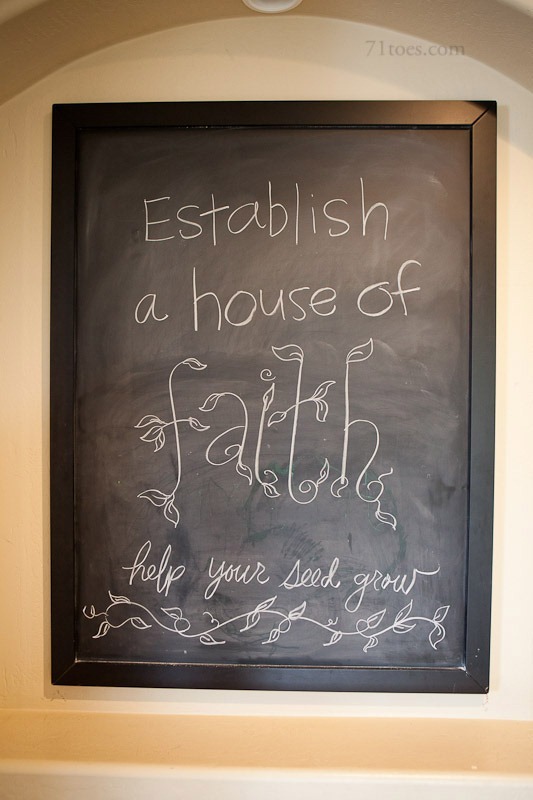 71toes.com
Establish
a house of
faith
help your seed grow